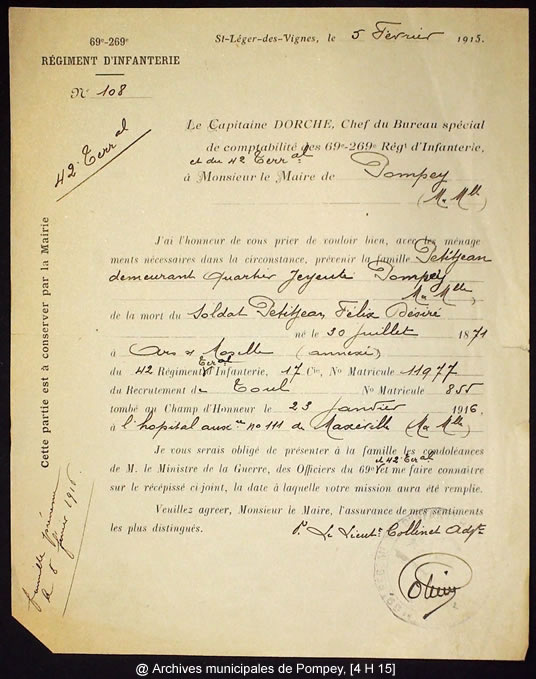 69e-269e
RÉGIMENT D'INFANTERIE
No 108
42e Terral
St-Léger-des-Vignes, le 5 Février 1915.
Le Capitaine DORCHE, Chef du Bureau spécial
de comptabilité des 69e-269e Régt d'Infanterie,
et du 42e Terral
à Monsieur le Maire de Pompey
(M. Mlle)
J'ai l'honneur de vous prier de vouloir bien, avec les ménage
ments nécessaires dans la circonstance, prévenir la famille Petitjean
demeurant Quartier Pompey
M. Mlle
de la mort du Soldat Petitjean Félix Désiré
né le 30 Juillet 1871
à Ars s/ Moselle (annexé)
du 42 Régiment Terral d'Infanterie, 17 Cie, No Matricule 11977
du Recrutement de Toul No Matricule 855
tombé au Champ d'Honneur le 23 janvier 1916
à l'hopital auxre no 111 de Maxéville (M. Mlle)
Je vous serais obligé de présenter à la famille les condoléances
de M. le Ministre de la Guerre, des Officiers du 69e et 42e Terral et me faire connaître
sur le récépissé ci joint, la date à laquelle votre mission aura été remplie.
Veuillez agreer, Monsieur le Maire, l'assurance de mes sentiments
les plus distingués.
P. Le Lieutt Collinet Adjt
Cette partie est à conserver par la Mairie
famille prévenue
le 8 février 1916.
@ Archives municipales de Pompey, [4 H 15]